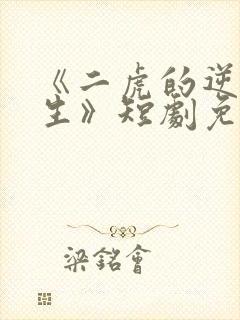 《二虎的逆
生》短劇免
梁銘會